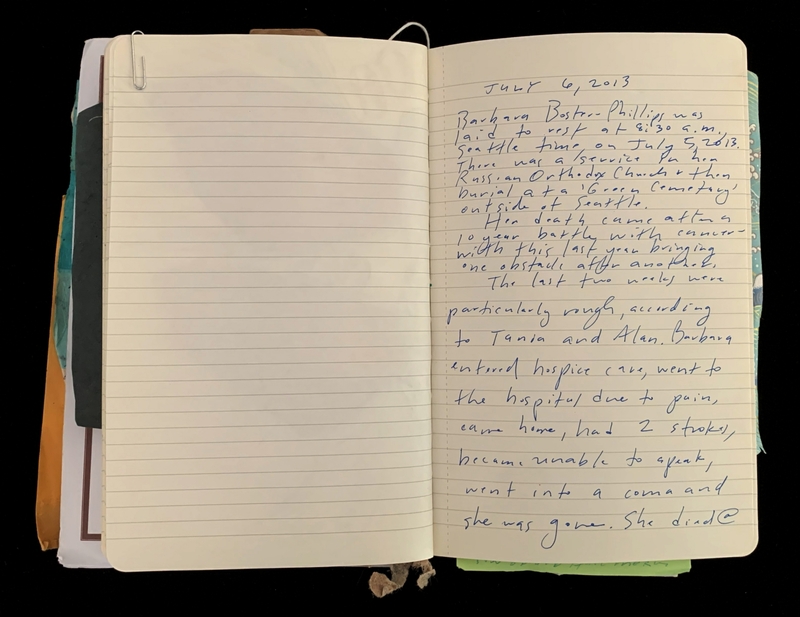 JULY 6, 2013
Barbara Boster-Phillips was
laid to rest at 8:30 a.m.,
Seattle time on July 5, 2013.
There was a service in her
Russian Orthodox Church & then
burial at a 'Green Cemetery'
outside of Seattle.
Her death came after a
10 year battle with cancer-
with this last year bringing
one obstacle after another.
The last two weeks were
particularly rough, according
to Tania and Alan. Barbara
entered hospice care, went to
the hospital due to pain,
came home, had 2 strokes,
became unable to speak,
went into a coma and
she was gone. She died @